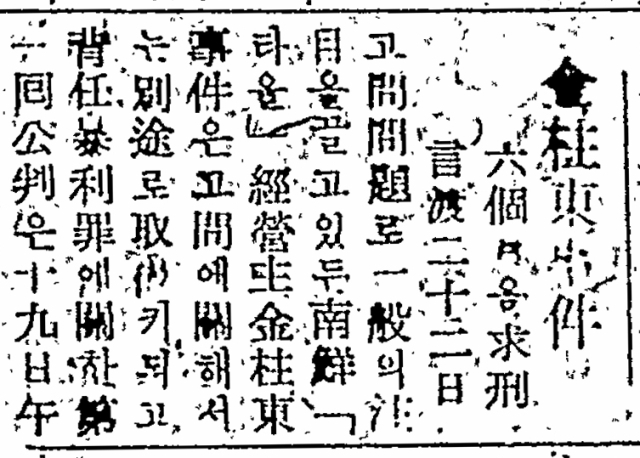 金桂東事件
六個月을求刑
言渡二十二日
고問問題로一般의注
目을끌고있는南鮮「
타올」經營主金桂東
事件은고問에關해서
는別途로取扱키되고
背任暴利罪에關한第
一回公判은十九日午